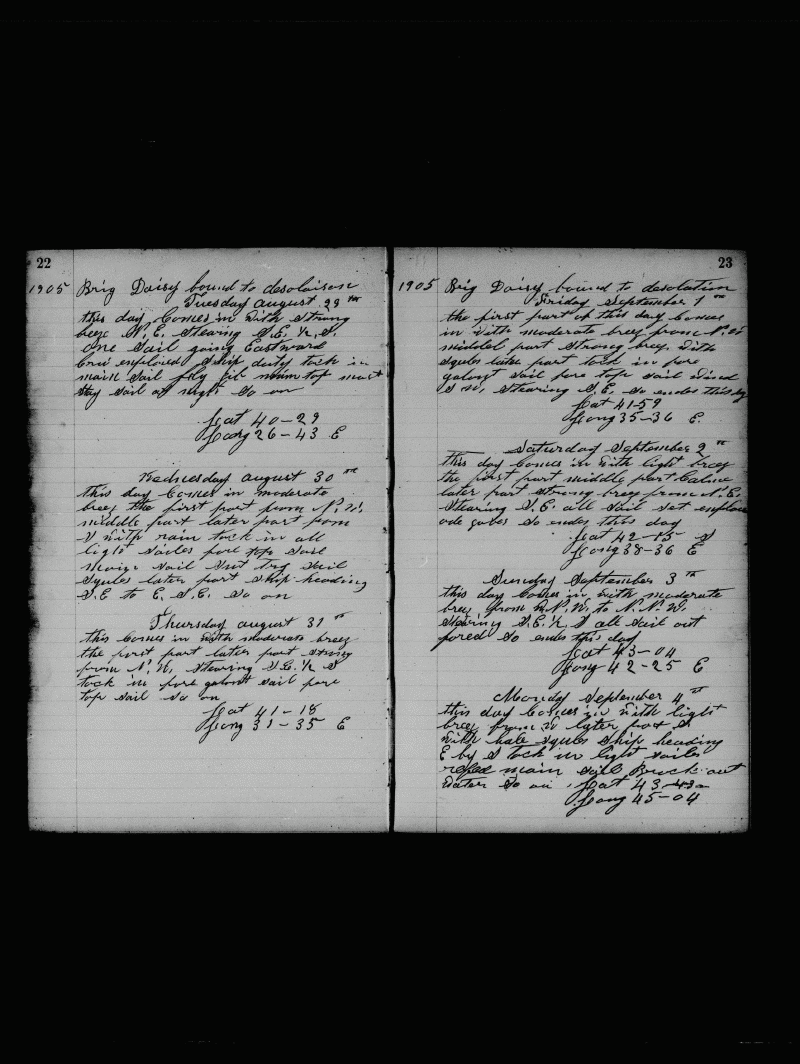 22
1905 Brig Daisy bound to desolaison
Tuesday august 29th
this day Comes in with strong
breze N.E. stearing S.E. ½ S.
one sail going Eastward
Cru employed ship duty tock in
main sail fly jib main top mast
stay sail at night so on
Lat 40-29
Long 26-43 E
Wednesday august 30th
this day Comes in moderate
brez the first part from N.W.
middle part later part from
S with rain tock in all
light sailes fore top sail
main sail and try sail
squles later part ship heading
S.E to E.S.E. so on
Thursday august 31th
this Comes in with moderate breez
the first part later part strong
from N.W. stearing S.E. ½ S
tock in fore galont sail fore
top sail so on
Lat 41-18
Long 31-35 E
23
1905 Brig Daisy bound to desolation
Friday September 1th
the first part of this day Comes
in with moderate brez from N.
middel part strong brez with
squles later part tock in fore
galont sail fore top sail wind
S W, stearing S.E. so endes this day
Lat 41-59
Long 35-36 E.
Saturday September 2th
this day Comes in with light brez
the first part middle part Calme
later part strong brez from N.E.
stearing S.E. all sail set
so endes this day
Lat 42-15 S
Long 38-36 E
Sunday September 3th
this day Comes in with moderate
brez from W.N.W. to N.N.W.
stearing S.E. ½ S all sail out
fored so endes this day
Lat 43-04
Long 42-25 E
Monday September 4th
this day Comes in with light
brez from W later part S
with hale squles ship heading
E by S tock in light sailes
refed main sail Brock out
water so on Lat 43-43
Long 45-04